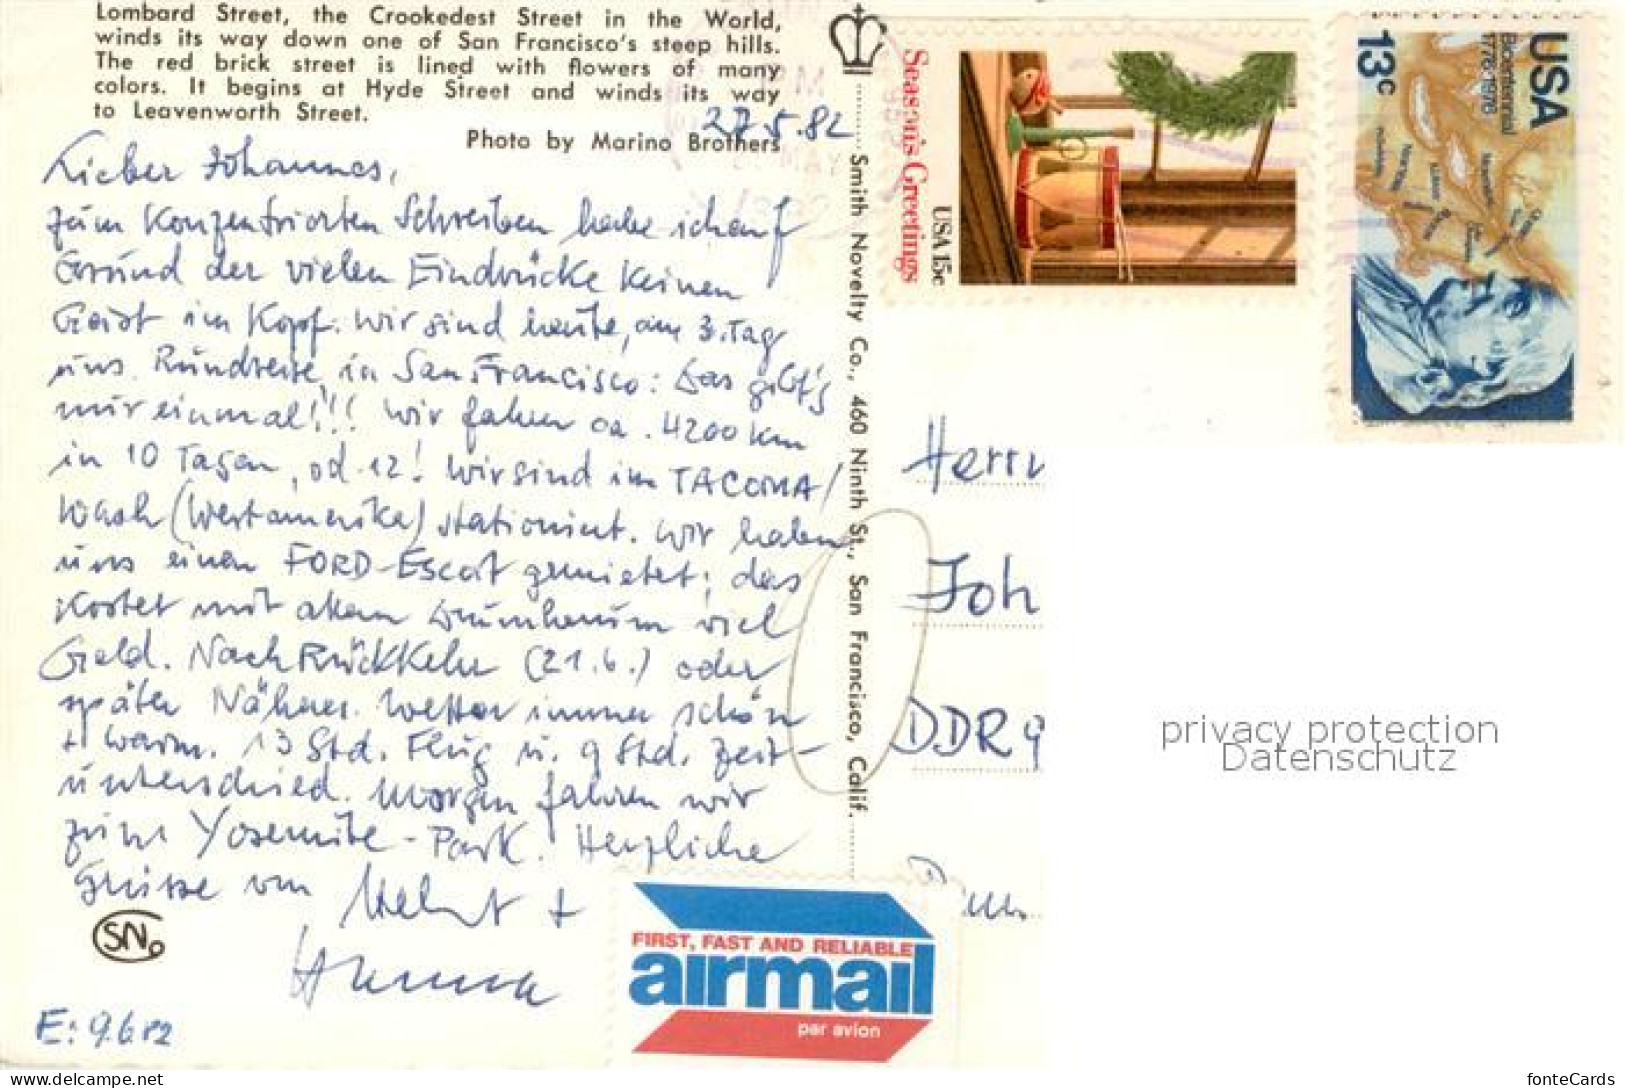 Lombard Street, the Crookedest Street in the World,
winds its way down one of San Francisco's steep hills.
The red brick street is lined with flowers of many
colors. It begins at Hyde Street and winds its way
to Leavenworth Street.
Photo by Marino Brothers
27.5.82
Lieber Johannes,
zum Konzentrierten Schreiben habe ich auf
Grund der vielen Eindrücke keinen
Geist im Kopf. Wir sind heute, am 3. Tag
uns. Rundreise, in San Francisco: Das gibt's
nur einmal!!! Wir fahren ca. 4200 km
in 10 Tagen, od. 12! Wir sind im TACOMA/
Wash (Westamerika) stationiert. Wir haben
uns einen FORD-Escort gemietet; das
kostet mit allem Drumherum viel
Geld. Nach Rückkehr (21.6.) oder
später Näheres. Wetter immer schön
+ warm. 13 Std. Flug u. 9 Std. Zeit-
unterschied. Morgen fahren wir
zum Yosemite-Park. Herzliche
Grüsse von Helmut +
Hanna
SN
E: 9.6.82
Smith Novelty Co., 460 Ninth St., San Francisco, Calif.
Season's Greetings
USA 15c
USA
13c
Bicentennial
1776-1976
Herrn
Joh
DDR 9
FIRST, FAST AND RELIABLE
airmail
par avion
privacy protection
Datenschutz
delcampe.net
fonteCards